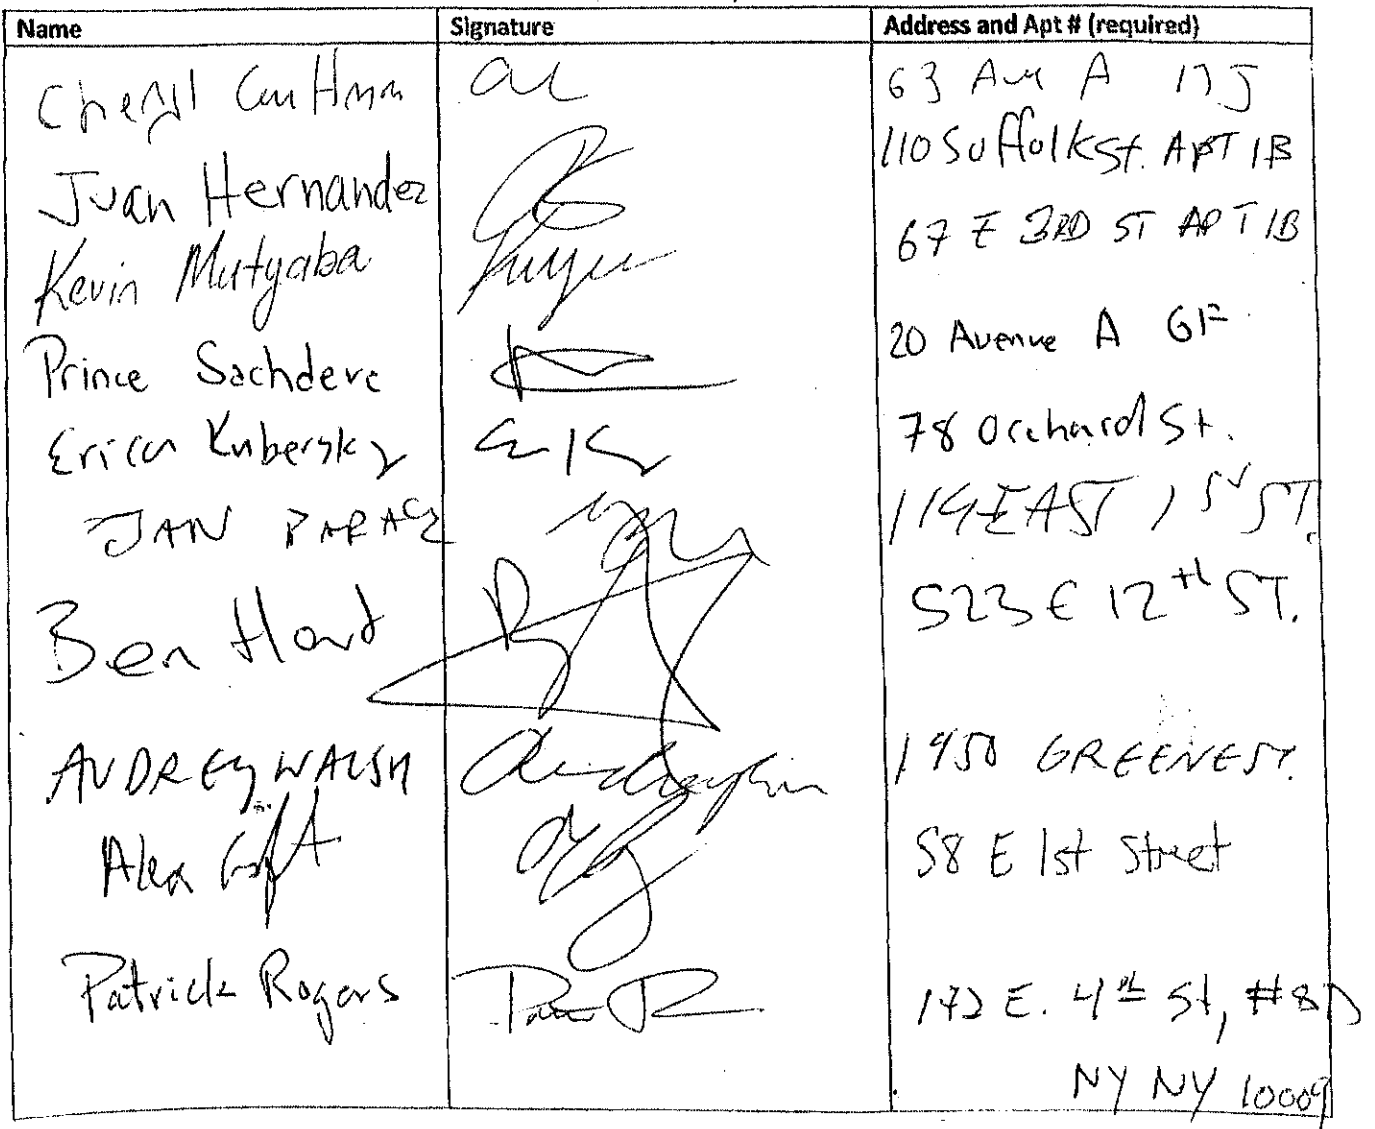 Name Signature Address and Apt # (required)
Cheryl 63 Ave A 17J
Juan Hernandez 110 Suffolk St. APT 1B
Kevin Mutyaba 67 E 3RD ST APT 1B
Prince Sachdeva 20 Avenue A 6F
Erica Kubersky 78 Orchard St.
JAN 119 EAST 1ST ST.
Ben Hart 523 E 12th ST.
AUDREY WALSH GREENE ST.
Alex 58 E 1st Street
Patrick Rogers 172 E. 4th St, #8D
NY NY 10009